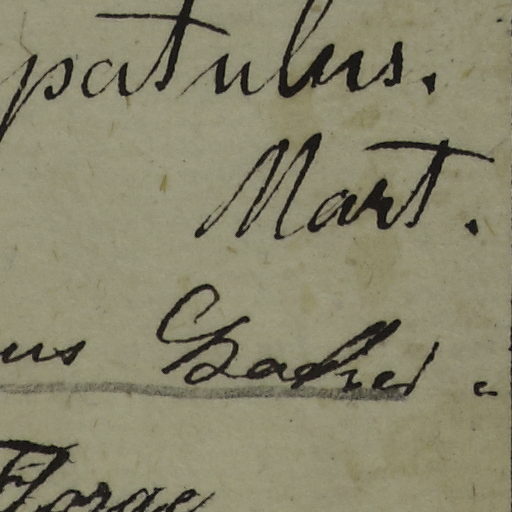 patulus.
Mart.
us
Florae